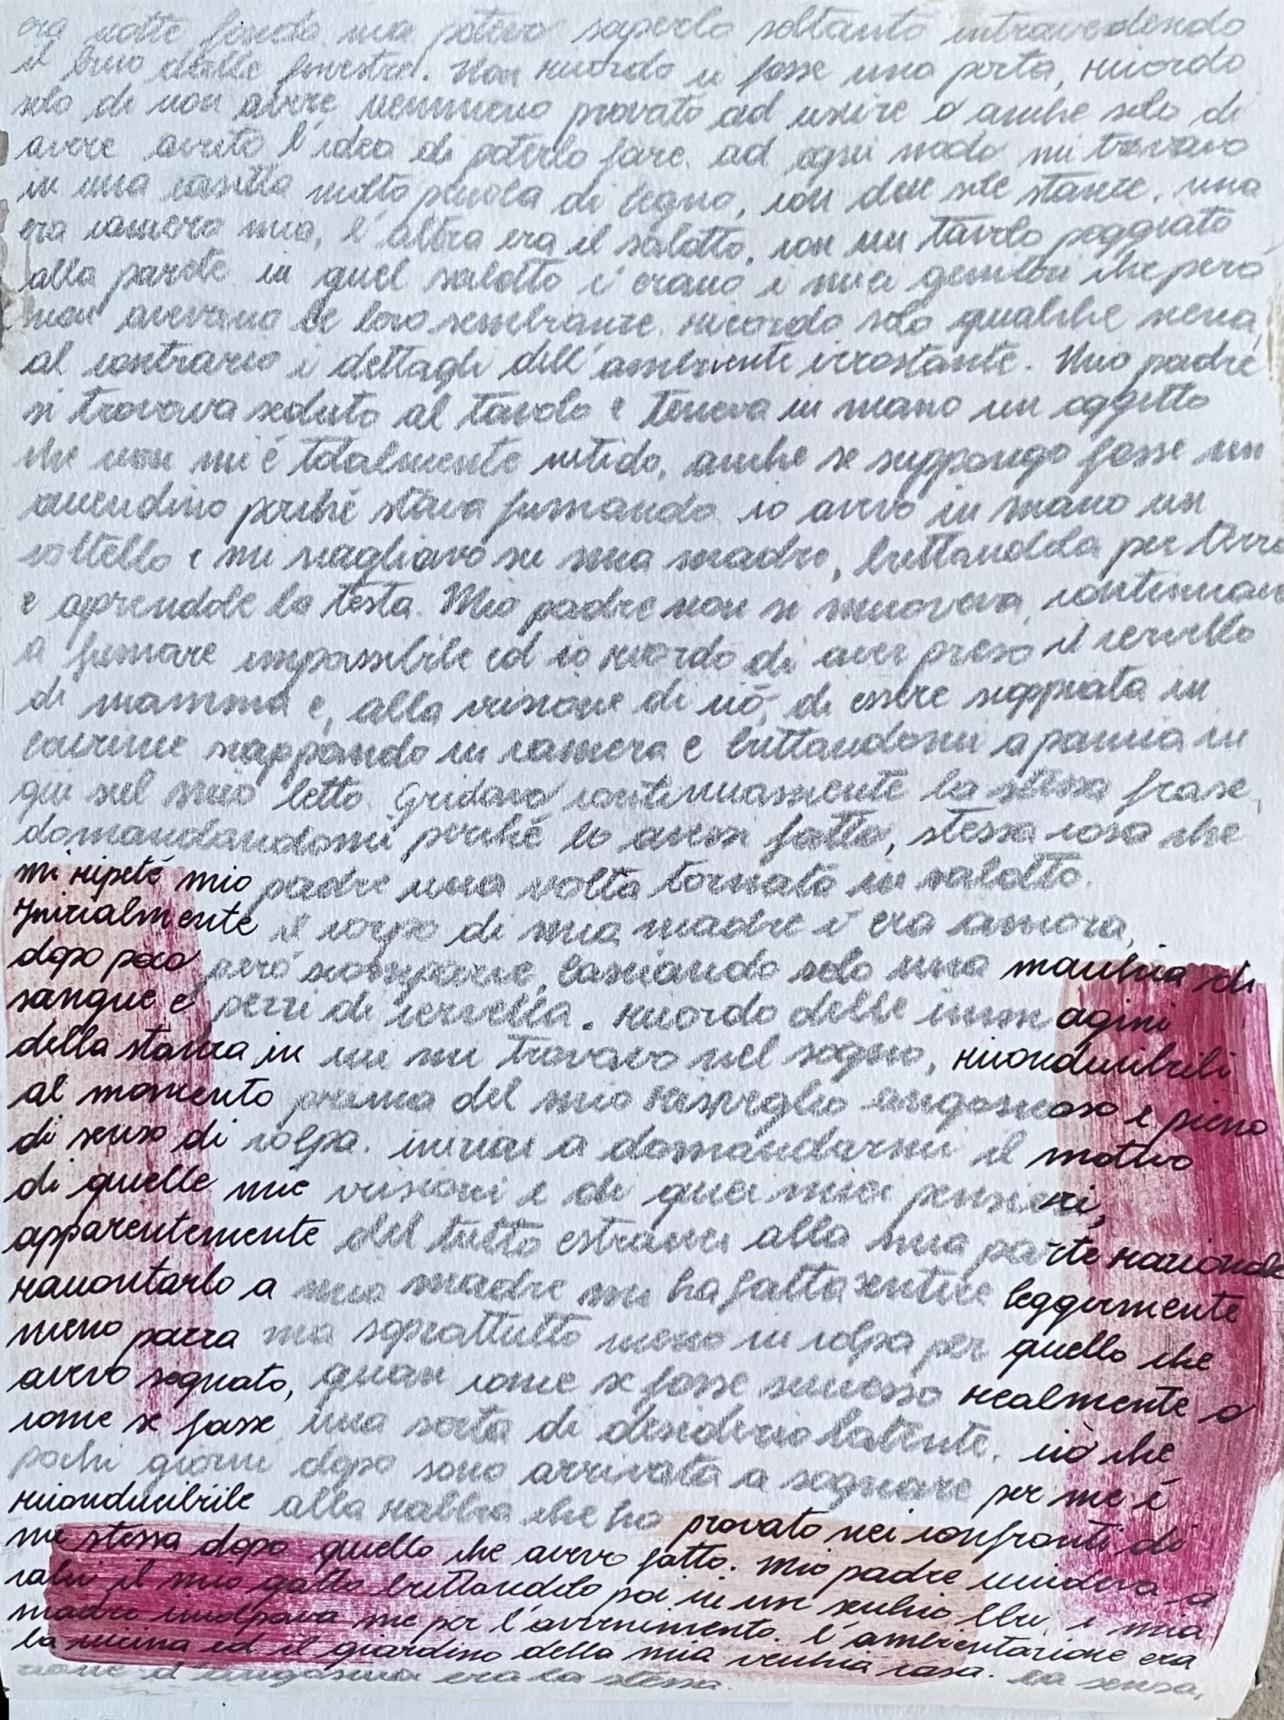 era notte fonda ma potevo saperlo soltanto intravedendo
il buio dalle finestre. Non ricordo vi fosse una porta, ricordo
solo di non avere nemmeno provato ad uscire o anche solo di
avere avuto l'idea di poterlo fare. ad ogni modo mi trovavo
in una casetta molto piccola di legno, con due sole stanze. una
era camera mia, l'altra era il salotto, con un tavolo poggiato
alla parete in quel salotto c'erano i miei genitori che però
non avevano le loro sembianze. ricordo solo qualche scena,
al contrario i dettagli dell'ambiente circostante. Mio padre
si trovava seduto al tavolo e teneva in mano un oggetto
che non mi è totalmente nitido, anche se suppongo fosse un
accendino perché stava fumando. io avevo in mano un
coltello e mi scagliavo su mia madre, buttandola per terra
e aprendole la testa. Mio padre non si muoveva, continuava
a fumare impassibile ed io ricordo di aver preso il cervello
di mamma e, alla visione di ciò, di essere scoppiata in
lacrime scappando in camera e buttandomi a pancia in
giù sul mio letto. Gridavo continuamente la stessa frase,
domandandomi perché lo avessi fatto, stessa cosa che
mi ripeté mio padre una volta tornata in salotto.
Inizialmente il corpo di mia madre c'era ancora,
dopo poco però scomparve, lasciando solo una macchia di
sangue e pezzi di cervella. ricordo delle immagini
della stanza in cui mi trovavo nel sogno, riconducibili
al momento prima del mio risveglio angoscioso e pieno
di senso di colpa. iniziai a domandarmi il motivo
di quelle mie visioni e di quei miei pensieri,
apparentemente del tutto estranei alla mia parte razionale
raccontarlo a mia madre mi ha fatta sentire leggermente
meno pazza ma soprattutto meno in colpa per quello che
avevo sognato, quasi come se fosse successo realmente o
come se fosse una sorta di desiderio latente. ciò che
pochi giorni dopo sono arrivata a sognare per me è
riconducibile alla rabbia che ho provato nei confronti di
me stessa dopo quello che avevo fatto. Mio padre uccideva a
calci il mio gatto buttandolo poi in un secchio blu. e mia
madre incolpava me per l'avvenimento. l'ambientazione era
la cucina ed il giardino della mia vecchia casa. la sensa,
zione d'angoscia era la stessa.